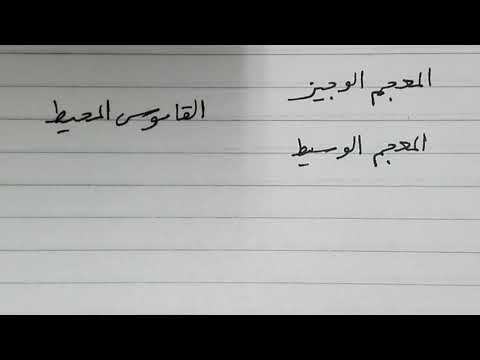 المعجم الوجيز
القاموس المحيط
المعجم الوسيط